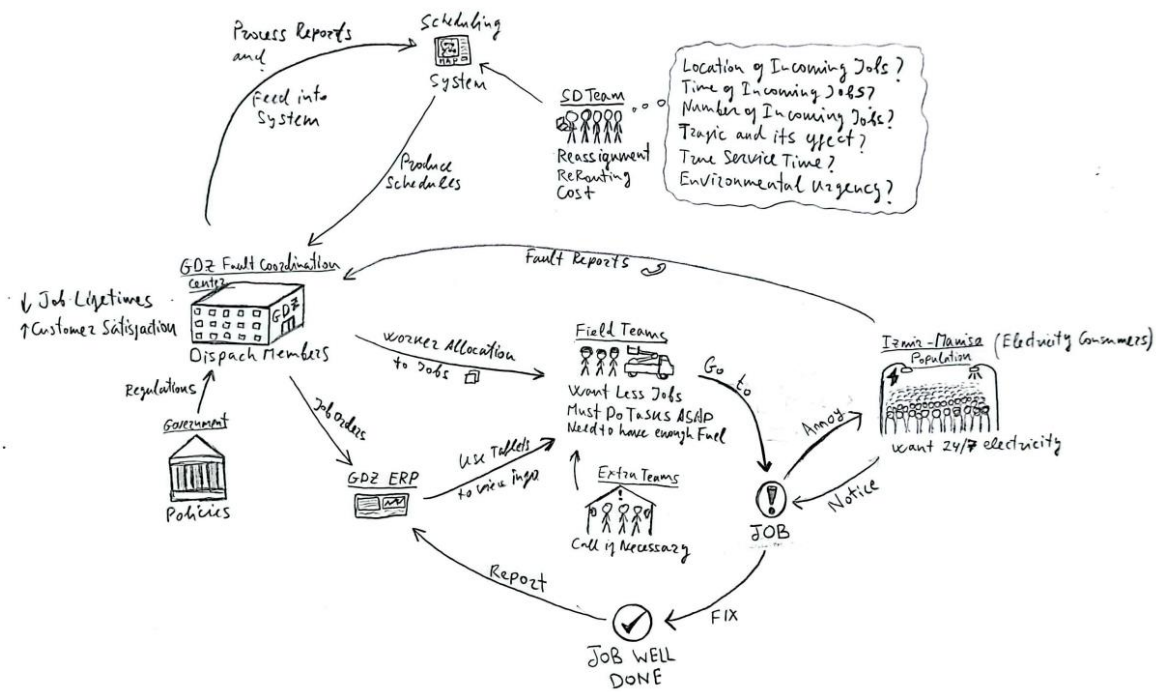 Process Reports
and
Feed into
System
Scheduling
MAP
System
Produce
Schedules
SD Team
Reassignment
ReRouting
Cost
Location of Incoming Jobs?
Time of Incoming Jobs?
Number of Incoming Jobs?
Trafic and its effect?
True Service Time?
Environmental Urgency?
GDZ Fault Coordination
Center
GDZ
↓ Job Lifetimes
↑ Customer Satisfaction
Dispach Members
Regulations
Government
Policies
Job Orders
GDZ ERP
Worker Allocation
to Jobs
Use Tablets
to view info
Fault Reports
Field Teams
Want Less Jobs
Must Do Tasks ASAP
Need to have enough Fuel
Extra Teams
!
Call if Necessary
Go to
!
JOB
Annoy
Notice
Izmir-Manisa (Electricity Consumers)
Population
want 24/7 electricity
FIX
JOB WELL
DONE
Report